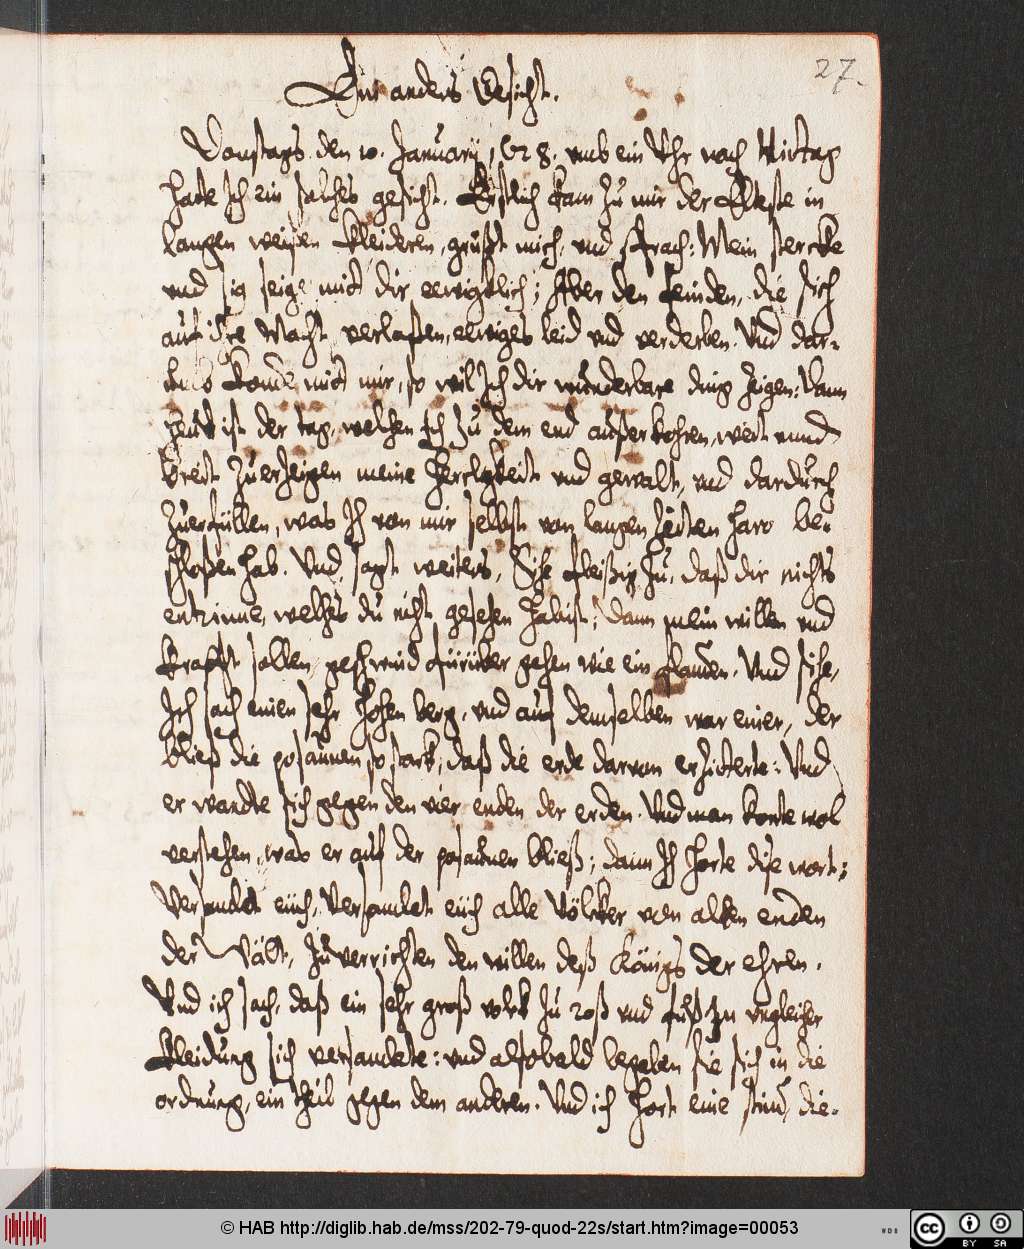 27.
Ein anders Gesicht.
Donstags den 10. January, 628. umb ein Uhr nach Mittag
hatt Ich ein solches gesicht. Erstlich kam zu mir der Elteste in
langen weißen kleideren, grüßt mich, und sprach: Mein stercke
und sig seige mit dir ewigklich; Aber den feinden, die sich
auf ihre Macht verlaßen, ewiges leid und verderben. Und dar-
komb mit mir, so wil Ich dir wunderbare ding zeigen: Dann
heut ist der tag, welchen ich zu dem end außerkohren, weit unnd
breit zuerzeigen meine Herligkeit und gewalt, und dardurch
zuerfüllen, was Ich von mir selbst von langen zeiten haro be-
schloßen hab. Und sagt weiters, Sihe fleißig zu, daß dir nichts
entrinne, welches du nicht gesehen habist; Dann mein willen und
krafft sollen geschwind fürüber gehen wie ein . Und sihe,
Ich sach einen sehr hohen berg, und auf demselben war einer, der
bließ die posaunen so starck, daß die erde darvon erzitterte: Und
er wandte sich gegen den vier enden der erden. Und man konte wol
verstehen, was er auf der posaunen bließ; dann Ich horte dise wort:
Versamlet euch, Versamlet euch alle Völcker von allen enden
der Wält, zu verrichten den willen deß Königs der ehren.
Und ich sach, daß ein sehr groß volck zu roß und fuß In ungleicher
kleidung sich versamlete: und alsobald begaben sie sich in die
ordnung, ein theil gegen dem anderen. Und ich hort eine stim, die-
© HAB http://diglib.hab.de/mss/202-79-quod-22s/start.htm?image=00053
WDB
cc BY SA